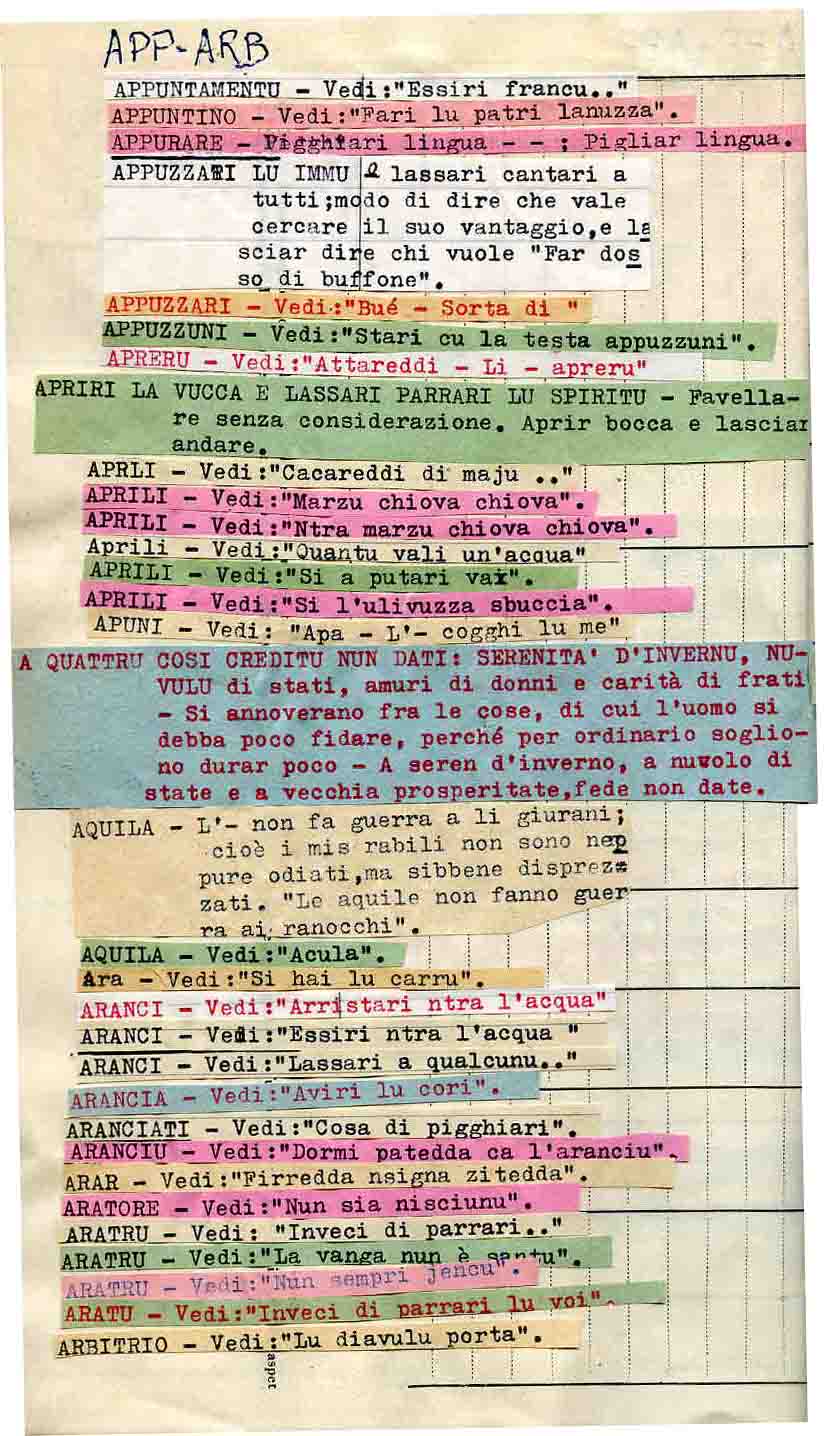 APP-ARB
APPUNTAMENTU - Vedi:"Essiri francu.."
APPUNTINO - Vedi:"Fari lu patri lanuzza".
APPURARE - Pigghiari lingua - - ; Pigliar lingua.
APPUZZARI LU IMMU e lassari cantari a
tutti;modo di dire che vale
cercare il suo vantaggio,e la
sciar dire chi vuole "Far dos
so di buffone".
APPUZZARI - Vedi:"Bué - Sorta di "
APPUZZUNI - Vedi:"Stari cu la testa appuzzuni".
APRERU - Vedi:"Attareddi - Li - apreru"
APRIRI LA VUCCA E LASSARI PARRARI LU SPIRITU - Favella-
re senza considerazione. Aprir bocca e lasciar
andare.
APRLI - Vedi:"Cacareddi di maju .."
APRILI - Vedi:"Marzu chiova chiova".
APRILI - Vedi:"Ntra marzu chiova chiova".
Aprili - Vedi:"Quantu vali un'acqua"
APRILI - Vedi:"Si a putari vai".
APRILI - Vedi:"Si l'ulivuzza sbuccia".
APUNI - Vedi: "Apa - L'- cogghi lu me"
A QUATTRU COSI CREDITU NUN DATI: SERENITA' D'INVERNU, NU-
VULU di stati, amuri di donni e carità di frati
- Si annoverano fra le cose, di cui l'uomo si
debba poco fidare, perché per ordinario soglio-
no durar poco - A seren d'inverno, a nuvolo di
state e a vecchia prosperitate,fede non date.
AQUILA - L'- non fa guerra a li giurani;
cioè i mis rabili non sono nep
pure odiati,ma sibbene disprez=
zati. "Le aquile non fanno guer
ra ai ranocchi".
AQUILA - Vedi:"Acula".
Ara - Vedi:"Si hai lu carru".
ARANCI - Vedi:"Arristari ntra l'acqua"
ARANCI - Vedi:"Essiri ntra l'acqua "
ARANCI - Vedi:"Lassari a qualcunu.."
ARANCIA - Vedi:"Aviri lu cori".
ARANCIATI - Vedi:"Cosa di pigghiari".
ARANCIU - Vedi:"Dormi patedda ca l'aranciu".
ARAR - Vedi:"Firredda nsigna zitedda".
ARATORE - Vedi:"Nun sia nisciunu".
ARATRU - Vedi: "Inveci di parrari.."
ARATRU - Vedi:"La vanga nun è santu".
ARATRU - Vedi:"Nun sempri jencu".
ARATU - Vedi:"Inveci di parrari lu voi".
ARBITRIO - Vedi:"Lu diavulu porta".
aspet